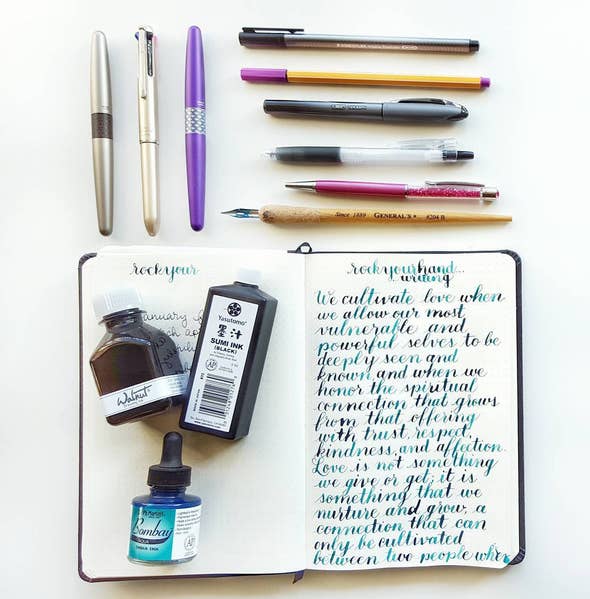 Since 1889 GENERAL'S® #204 B
rockyour
rockyourhand...
writing
We cultivate love when
we allow our most
vulnerable and
powerful selves to be
deeply seen and
known, and when we
honor the spiritual
connection that grows
from that offering
with trust, respect,
kindness, and affection.
Love is not something
we give or get; it is
something that we
nurture and grow, a
connection that can
only be cultivated
between two people when
Yasutomo
墨汁
SUMI INK
(BLACK)
Walnut
Bombay
INDIA INK